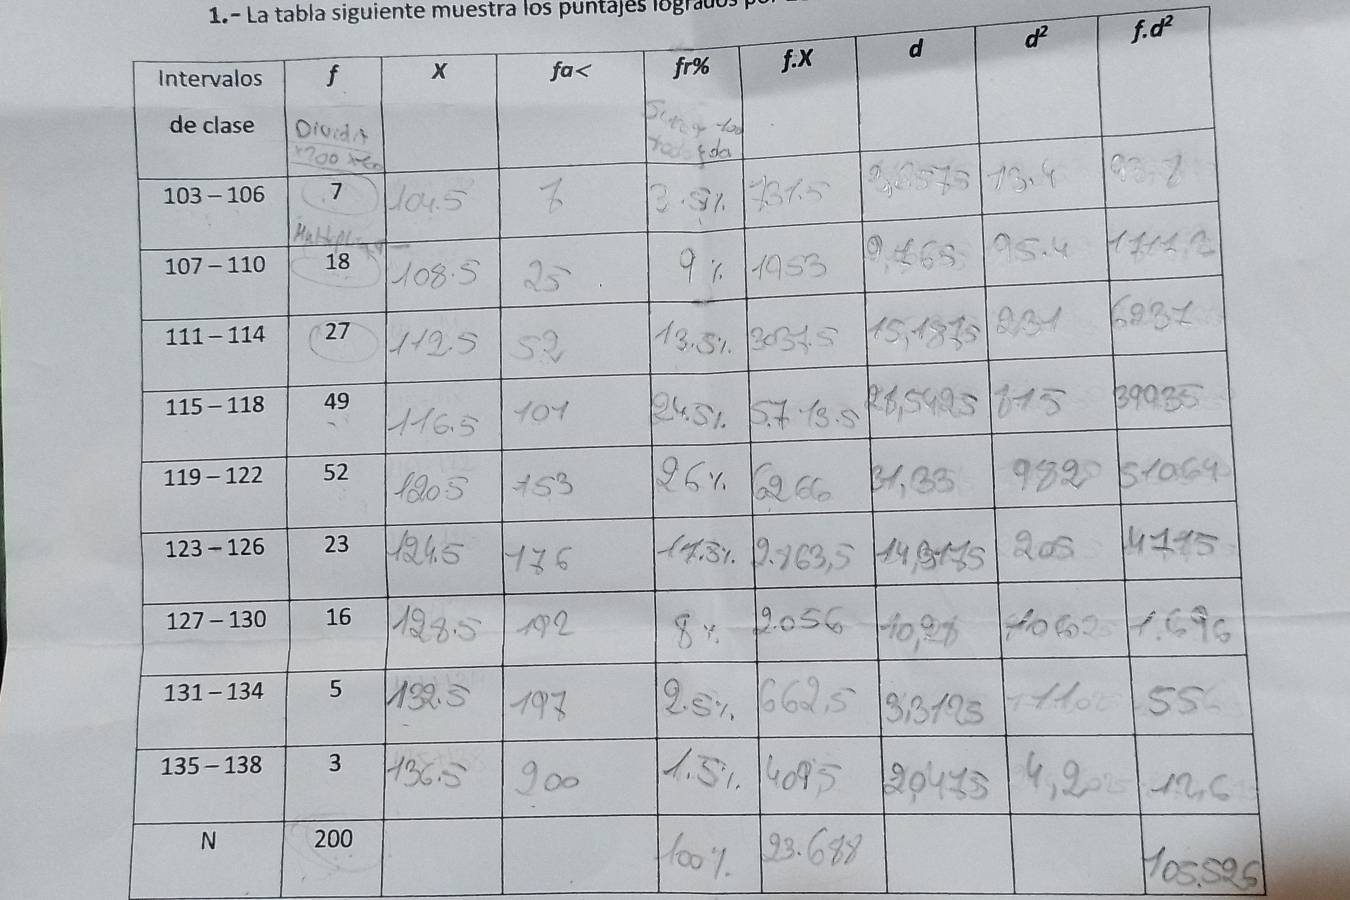 1.- La tabla siguiente muestra los puntajes logrados
Intervalos de clase f X fa< fr% f.X d d² f.d²
Divida
103 – 106 7 104.5 7 3.5% 731.5 13.4
107 – 110 18 108.5 25 9% 1953 95.4
111 – 114 27 112.5 52 13.5% 3037.5 15,1875 231 6237
115 – 118 49 116.5 101 24.5% 5.713.5 28,5425 815 39935
119 – 122 52 120.5 153 26% 6266 31,33 982 51064
123 – 126 23 124.5 176 2.863,5 14,3175 205 4715
127 – 130 16 128.5 192 8% 2.056 10,28 106 1.696
131 – 134 5 132.5 197 2.5% 662,5 3,3125 11 55
135 – 138 3 136.5 200 1.5% 409,5 2,0475 4,2 12,6
N 200 100% 23.688 105.526